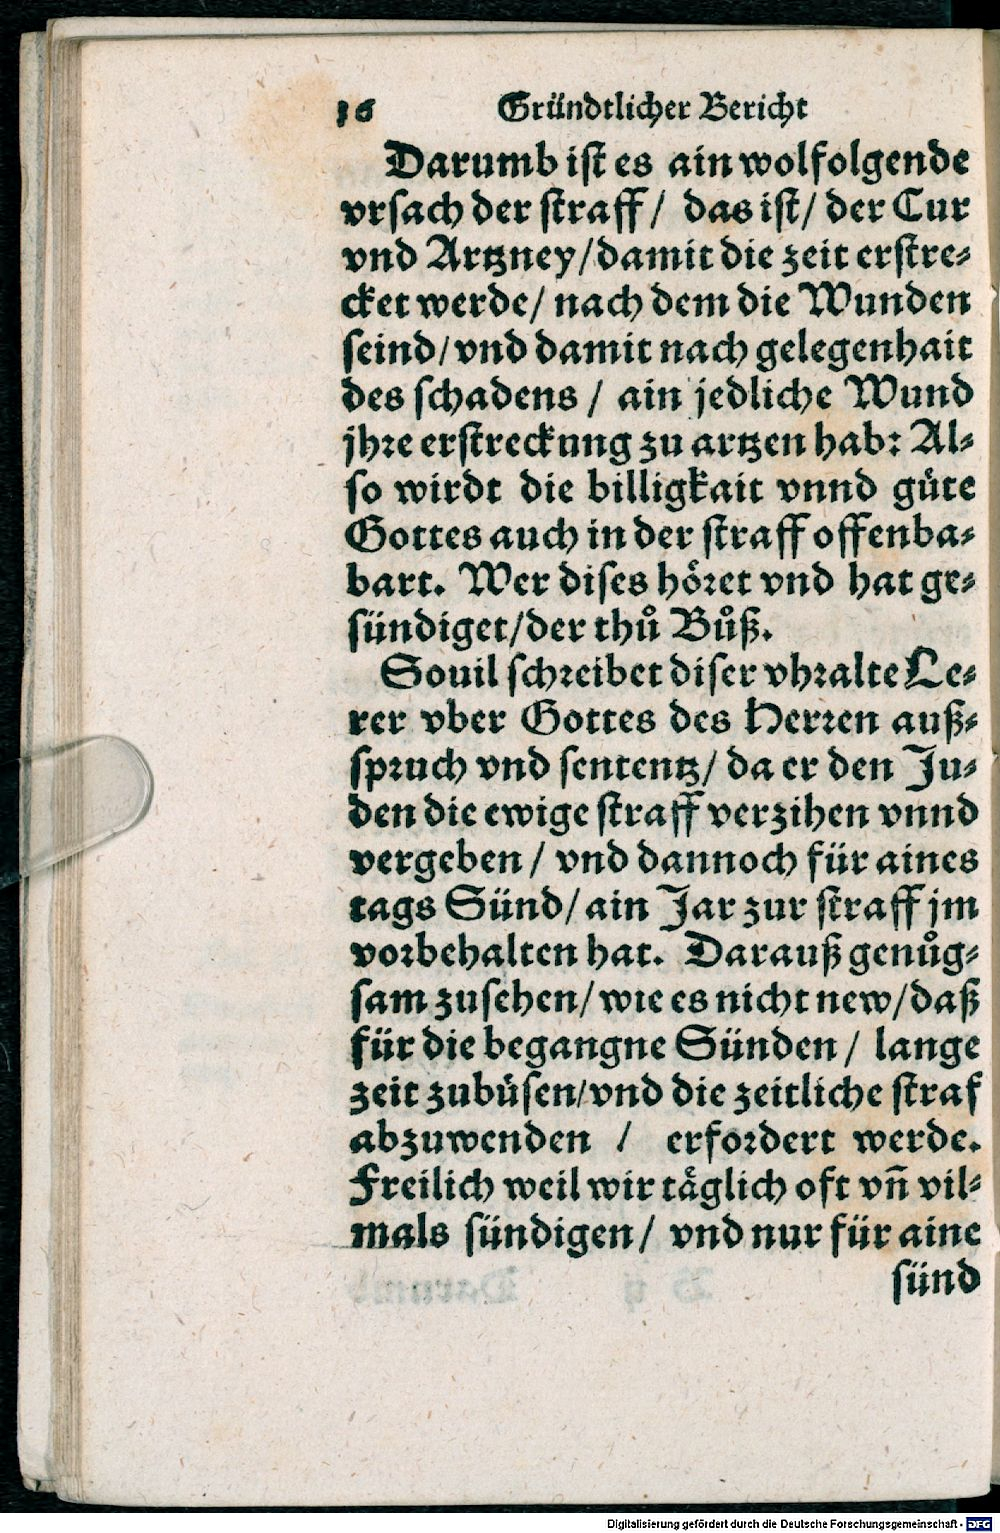 16 Gründtlicher Bericht
Darumb ist es ain wolfolgende
vrsach der straff/ das ist/ der Cur
vnd Artzney/damit die zeit erstre⸗
cket werde/ nach dem die Wunden
seind/vnd damit nach gelegenhait
des schadens / ain jedliche Wund
jhre erstreckung zu artzen hab: Al⸗
so wirdt die billigkait vnnd gůte
Gottes auch in der straff offenba⸗
bart. Wer dises höret vnd hat ge⸗
sündiget/der thů Bůß.
Souil schreibet diser vhralte Le⸗
rer vber Gottes des Herren auß⸗
spruch vnd sententz/ da er den Ju⸗
den die ewige straff verzihen vnnd
vergeben / vnd dannoch für aines
tags Sünd/ ain Jar zur straff jm
vorbehalten hat. Darauß genůg⸗
sam zusehen/ wie es nicht new/daß
für die begangne Sünden / lange
zeit zubüsen/vnd die zeitliche straf
abzuwenden / erfordert werde.
Freilich weil wir täglich oft vñ vil⸗
mals sündigen/ vnd nur für aine
sünd
Digitalisierung gefördert durch die Deutsche Forschungsgemeinschaft - DFG